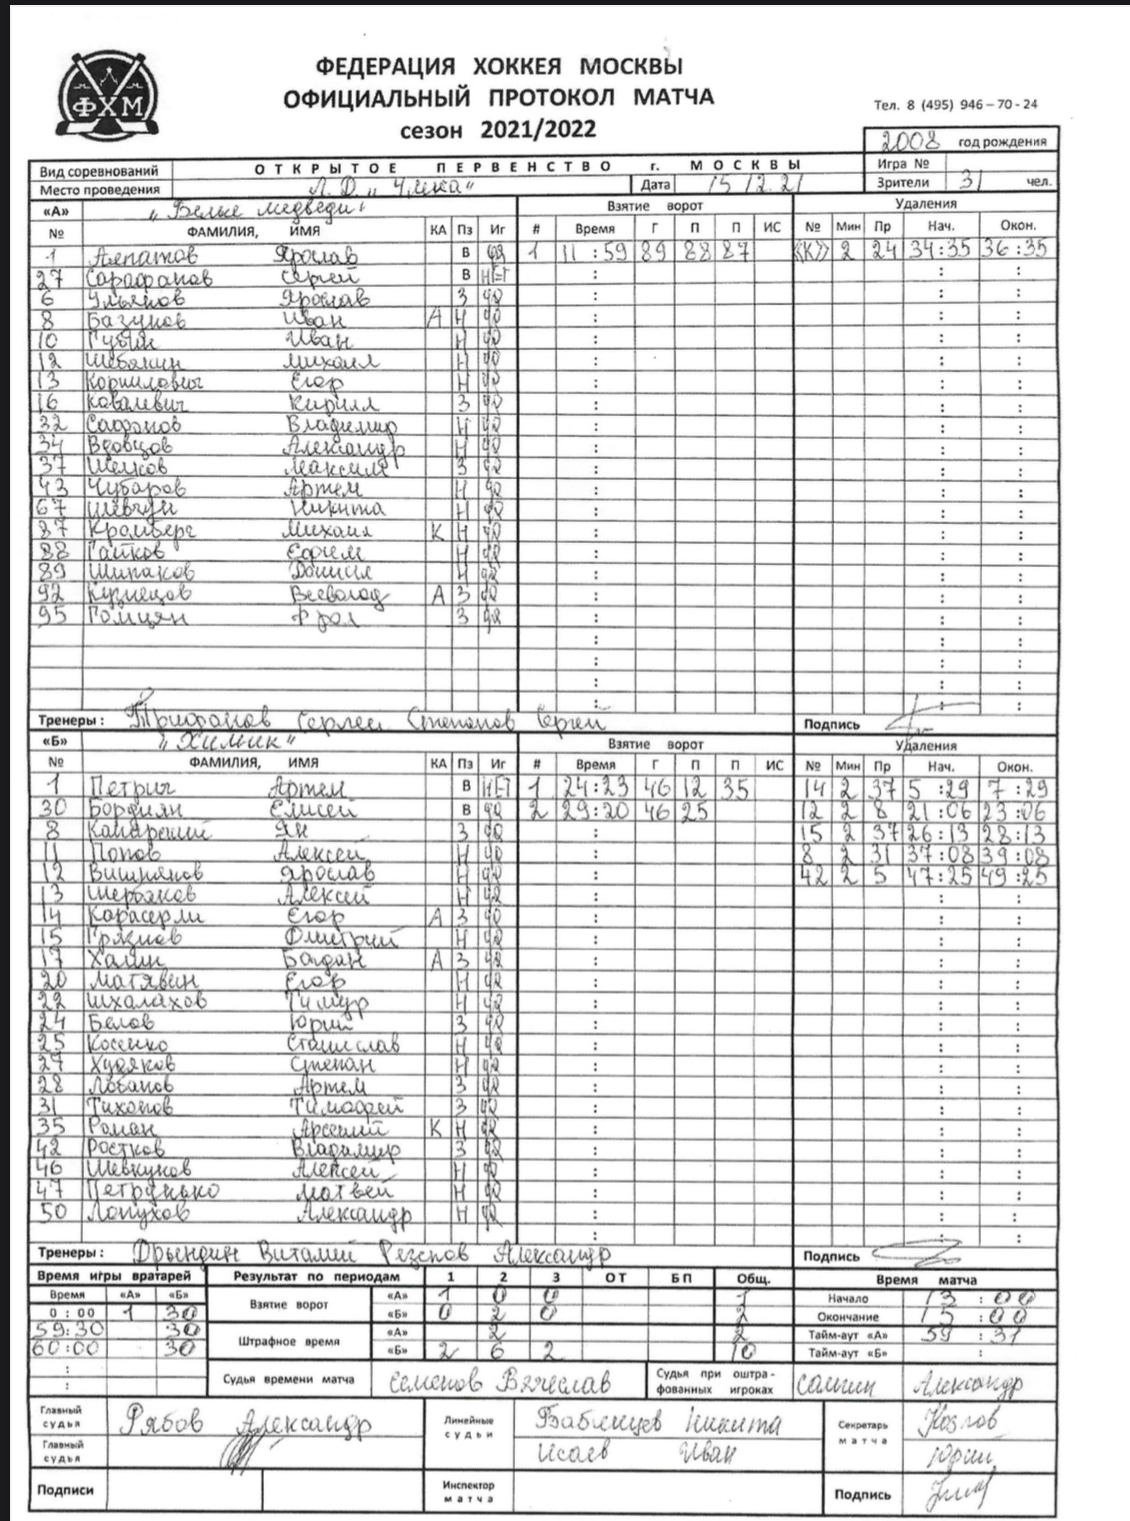 ФХМ
ФЕДЕРАЦИЯ ХОККЕЯ МОСКВЫ
ОФИЦИАЛЬНЫЙ ПРОТОКОЛ МАТЧА
сезон 2021/2022
Тел. 8 (495) 946-70-24
2008 год рождения
Вид соревнований ОТКРЫТОЕ ПЕРВЕНСТВО г. МОСКВЫ Игра №
Место проведения Л.Д. "Умка" Дата 15 12.21 Зрители 31 чел.
«А» "Белые медведи" Взятие ворот Удаления
№ ФАМИЛИЯ, ИМЯ КА Пз Иг # Время Г П П ИС № Мин Пр Нач. Окон.
1 Алпатов Ярослав В да 1 11:59 89 88 87 «К» 2 24 34:35 36:35
27 Сарафанов Сергей В НЕТ : : :
6 Ульянов Ярослав З да : : :
8 Базунов Иван А Н да : : :
10 Губин Иван Н да : : :
12 Шебанин Михаил Н да : : :
13 Корнилович Егор Н да : : :
16 Ковалевич Кирилл З да : : :
32 Сафонов Владимир Н да : : :
34 Вдовцов Александр Н да : : :
37 Шелков Максим З да : : :
43 Чубаров Артем Н да : : :
67 Шевчун Никита Н да : : :
87 Кромберг Михаил К Н да : : :
88 Гайков Ефим Н да : : :
89 Шипаков Даниил Н да : : :
92 Кузнецов Всеволод А З да : : :
95 Гомцян Фрол З да : : :
: : :
: : :
: : :
: : :
Тренеры: Трифанов Сергей Степанов Сергей Подпись
«Б» "Химик" Взятие ворот Удаления
№ ФАМИЛИЯ, ИМЯ КА Пз Иг # Время Г П П ИС № Мин Пр Нач. Окон.
1 Петрич Артем В НЕТ 1 24:23 46 12 35 14 2 37 5:29 7:29
30 Бордиян Елисей В да 2 29:20 46 25 12 2 8 21:06 23:06
8 Канарский Ян З да : 15 2 37 26:13 28:13
11 Попов Алексей Н да : 8 2 31 37:08 39:08
12 Вишняков Ярослав Н да : 42 2 5 47:25 49:25
13 Щербаков Алексей Н да : : :
14 Карасерли Егор А З да : : :
15 Грязнов Дмитрий Н да : : :
17 Халин Богдан А З да : : :
20 Матявин Егор Н да : : :
22 Шхалахов Тимур Н да : : :
24 Белов Юрий З да : : :
25 Косенко Станислав Н да : : :
27 Худяков Степан Н да : : :
28 Лобанов Артем З да : : :
31 Тихонов Тимофей З да : : :
35 Роман Арсений К Н да : : :
42 Ростков Владимир З да : : :
46 Шевкунов Алексей Н да : : :
47 Петрунько Матвей Н да : : :
50 Лопухов Александр Н да : : :
: : :
Тренеры: Дрындин Виталий Резепов Александр Подпись
Время игры вратарей Результат по периодам 1 2 3 ОТ БП Общ. Время матча
Время «А» «Б» Взятие ворот «А» 1 0 0 1 Начало 13:00
0:00 1 30 «Б» 0 2 0 2 Окончание 15:00
59:30 30 Штрафное время «А» 2 2 Тайм-аут «А» 59:31
60:00 30 «Б» 2 6 2 10 Тайм-аут «Б» :
:
:
Судья времени матча Семенов Вячеслав Судья при оштрафованных игроках Салтин Александр
Главный судья Рябов Александр Линейные судьи Бабинцев Никита Секретарь матча Козлов
Главный судья Исаев Иван Юрий
Подписи Инспектор матча Подпись